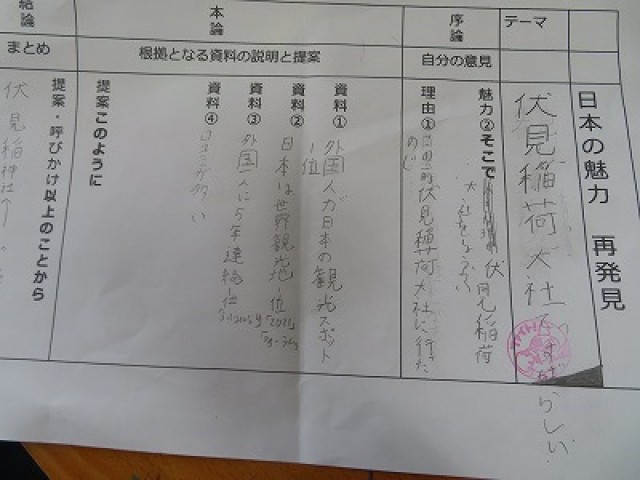 日本の魅力　再発見
テーマ
伏見稲荷大社のすばらしい
序論
自分の意見
魅力②そこで 伏見稲荷
大社をしょうかい
理由①
伏見稲荷大社に行った
本論
根拠となる資料の説明と提案
資料① 外国人が日本の観光スポット
1位
資料② 日本は世界観光地1位
資料③ 外国人に5年連続1位
資料④ 口コミが多い
提案このように
結論
まとめ
提案・呼びかけ以上のことから
伏見稲荷神社へ